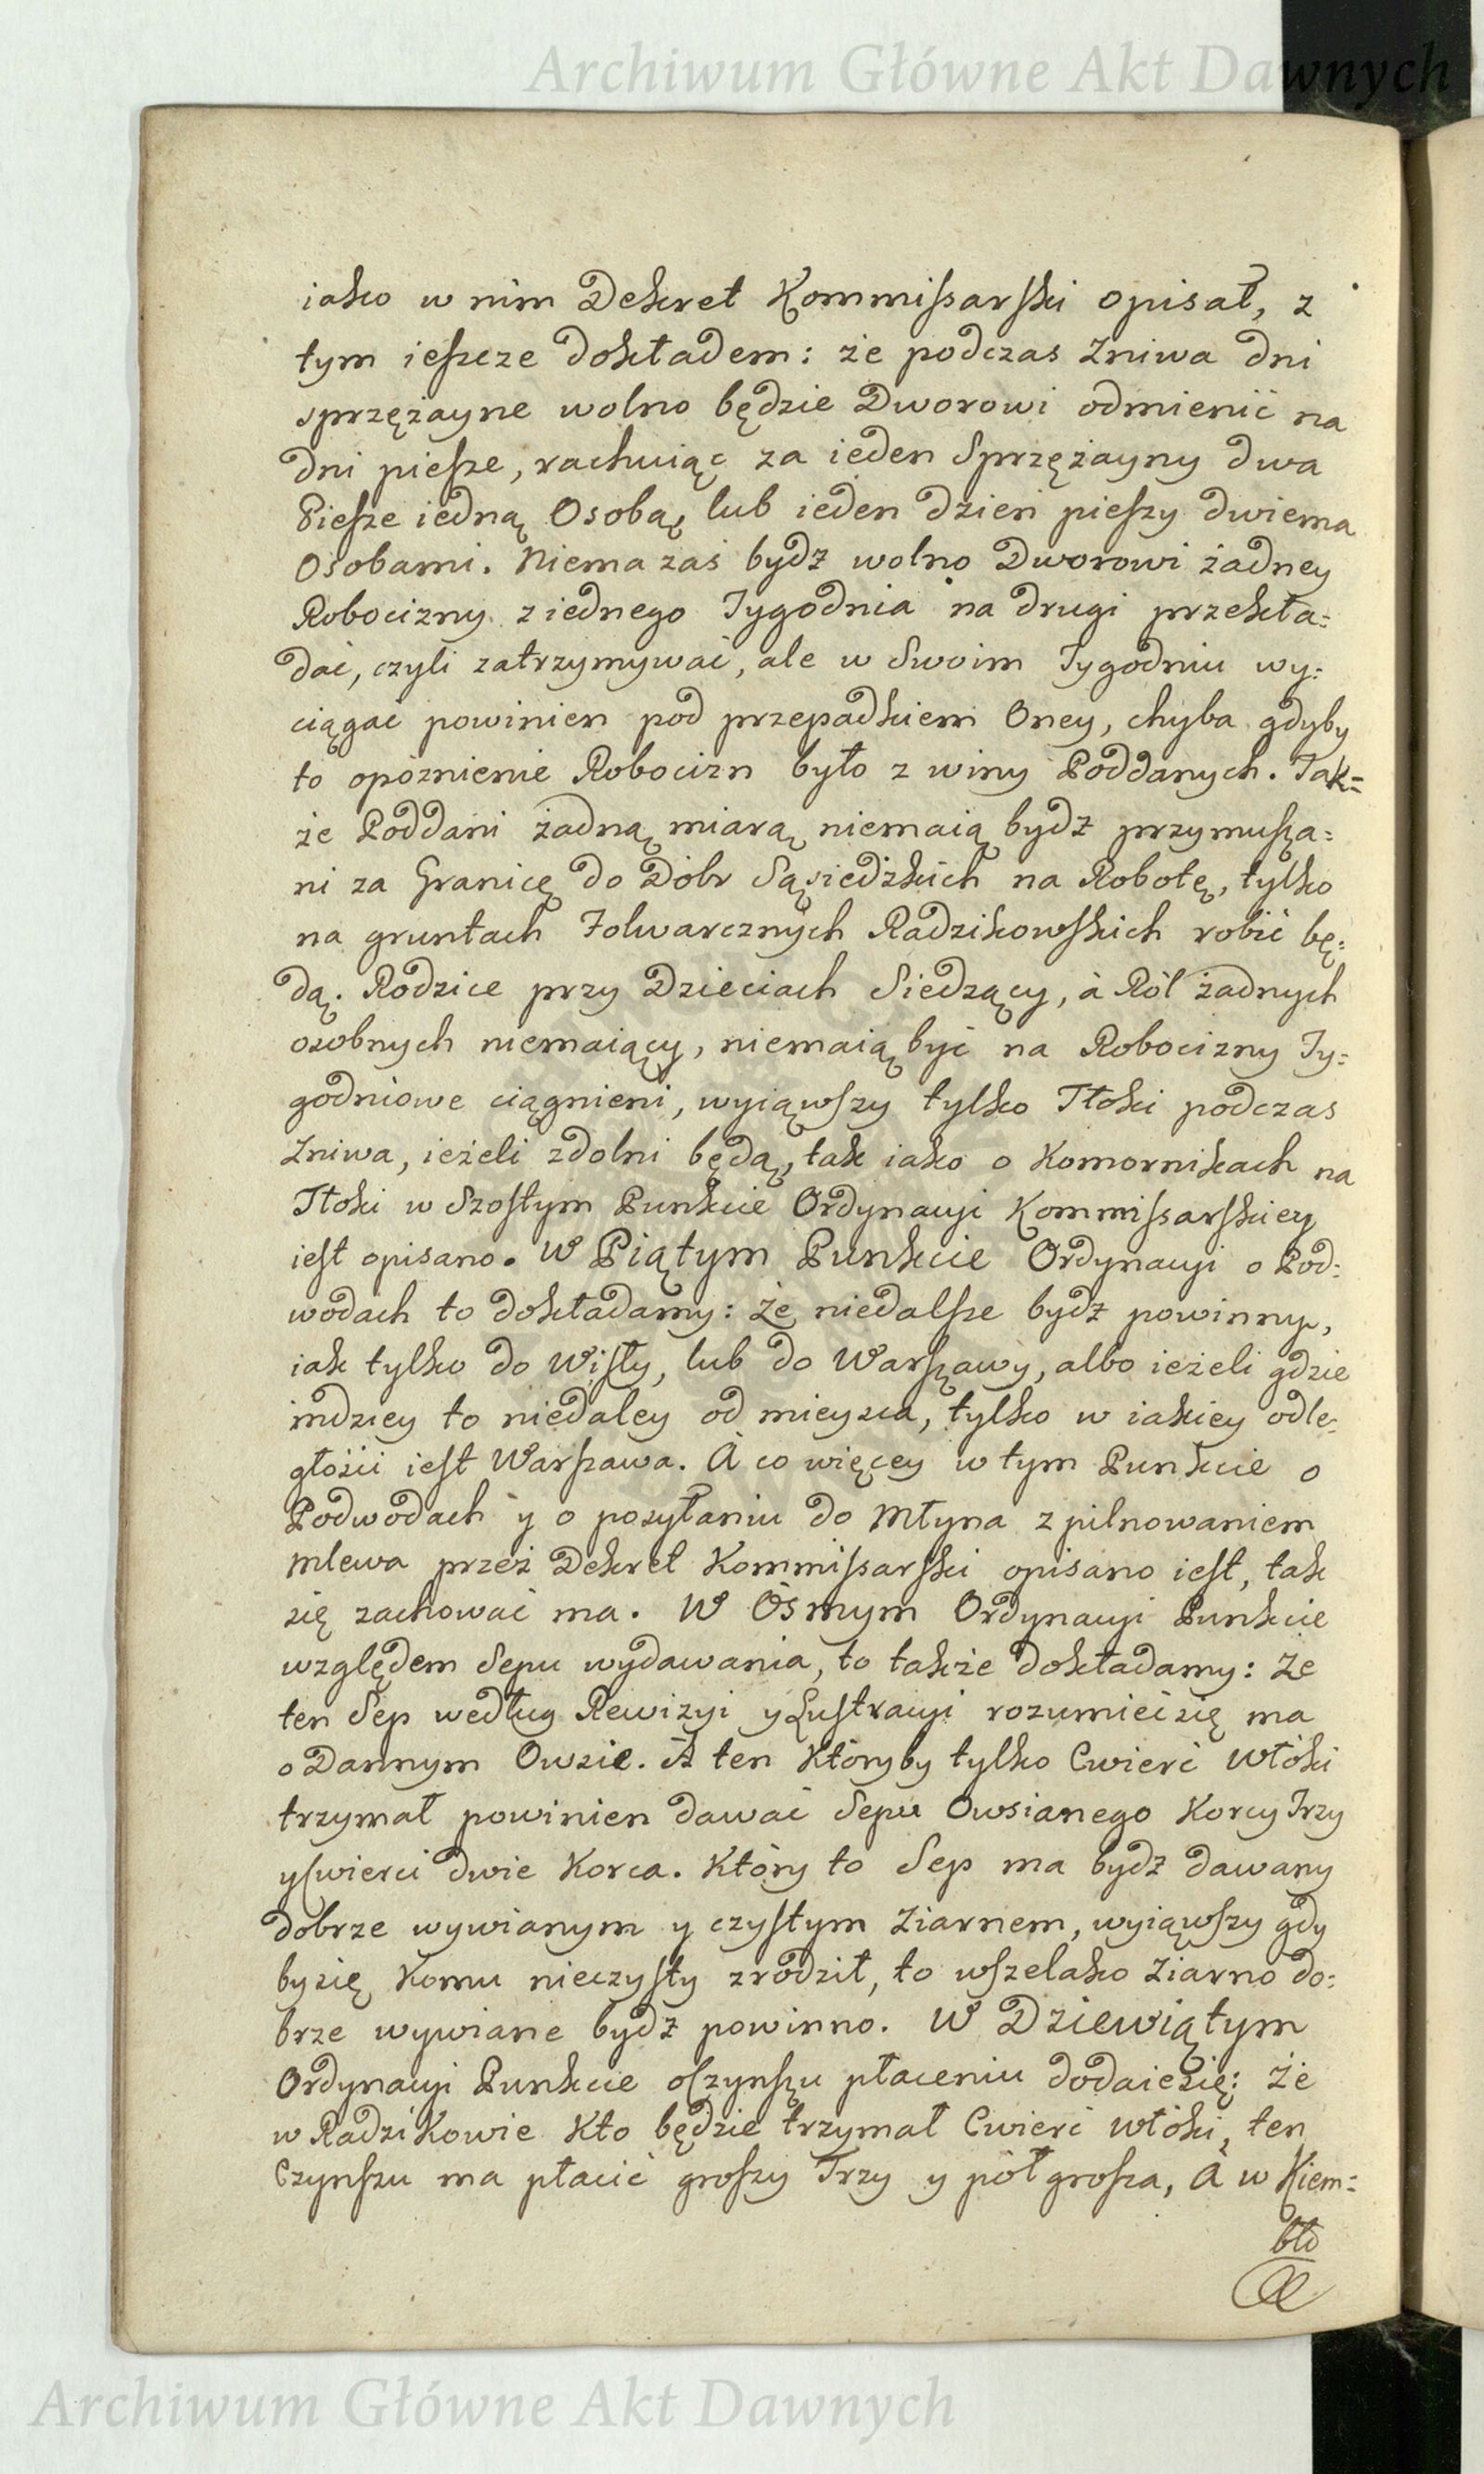 Archiwum Główne Akt Dawnych
iako w nim Dekret Kommissarski opisał, z
tym ieszcze dokładem: że podczas Zniwa dni
sprzężayne wolno będzie Dworowi odmienić na
dni piesze, rachuiąc za ieden Sprzężayny dwa
Piesze iedną Osobą, lub ieden dzień pieszy dwiema
Osobami. Niema zaś bydz wolno Dworowi żadney
Robocizny z iednego Tygodnia na drugi przekła=
dać, czyli zatrzymywać, ale w Swoim Tygodniu wy=
ciągać powinien pod przepadkiem Oney, chyba gdyby
to opóznienie Robocizn było z winy Poddanych. Tak=
że Poddani żadną miarą niemaią bydz przymusza=
ni za Granicę do Dóbr Sąsiedzkich na Robotę, tylko
na gruntach Folwarcznych Radzikowskich robić bę=
dą. Rodzice przy Dzieciach Siedzący, à Ról żadnych
osobnych niemaiący, niemaią być na Robocizny Ty=
godniowe ciągnieni, wyiąwszy tylko Tłoki podczas
Zniwa, ieżeli zdolni będą, tak iako o Komornikach na
Tłoki w Szostym Punkcie Ordynacyi Kommissarskiey
iest opisano. W Piątym Punkcie Ordynacyi o Pod=
wodach to dokładamy: Że niedalsze bydz powinny,
iak tylko do Wisły, lub do Warszawy, albo ieżeli gdzie
indziey to niedaley od mieysca, tylko w iakiey odle=
głości iest Warszawa. À co więcey w tym Punkcie o
Podwodach y o posyłaniu do Młyna z pilnowaniem
mlewa przez Dekret Kommissarski opisano iest, tak
się zachować ma. W Osmym Ordynacyi Punkcie
względem Sepu wydawania, to także dokładamy: Ze
ten Sep według Rewizyi y Lustracyi rozumieć się ma
o Dannym Owsie. A ten któryby tylko Cwierć Włóki
trzymał powinien dawać Sepu Owsianego Korcy Trzy
y Cwierci dwie Korca. Który to Sep ma bydz dawany
dobrze wywianym y czystym Ziarnem, wyiąwszy gdy
by się komu nieczysty zrodził, to wszelako Ziarno do=
brze wywiane bydz powinno. W Dziewiątym
Ordynacyi Punkcie o Czynszu płaceniu dodaie się: Że
w Radzikowie kto będzie trzymał Cwierć włóki, ten
Czynszu ma płacić groszy Trzy y pół grosza, À w Kiem=
bło
Archiwum Główne Akt Dawnych